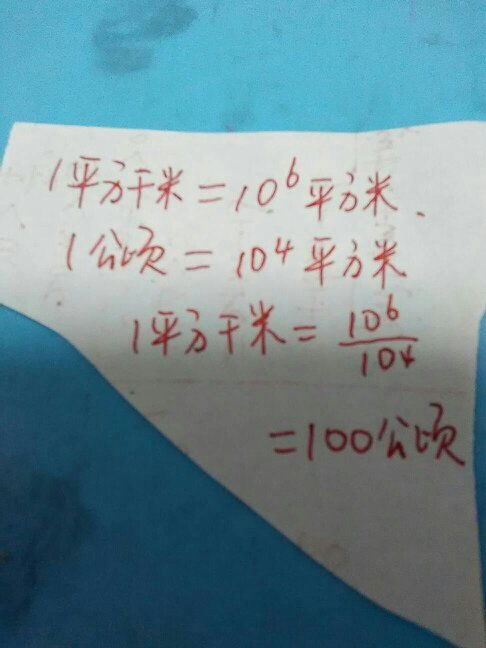 1平方千米=10⁶平方米、
1公顷=10⁴平方米
1平方千米=10⁶/10⁴
=100公顷